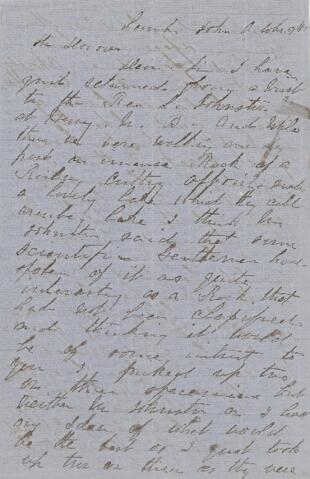 John October 9th
Dear Sir I have
just returned from a visit
to the Rev L. Johnston
at N. B. and while
there we were walking one day
past an immense Rock of a
Railway cutting opposite such
a lovely lake what they call
lake I think Mr
Johnston said that some
scientific Gentlemen had
spoken of it as quite
interesting as a Rock that
had not been classified
and thinking it would
be of some interest to
you I picked up two
or three specimens but
neither Mr Johnston or I had
any Idea of what would
be the best so I just took
up two or three as they were